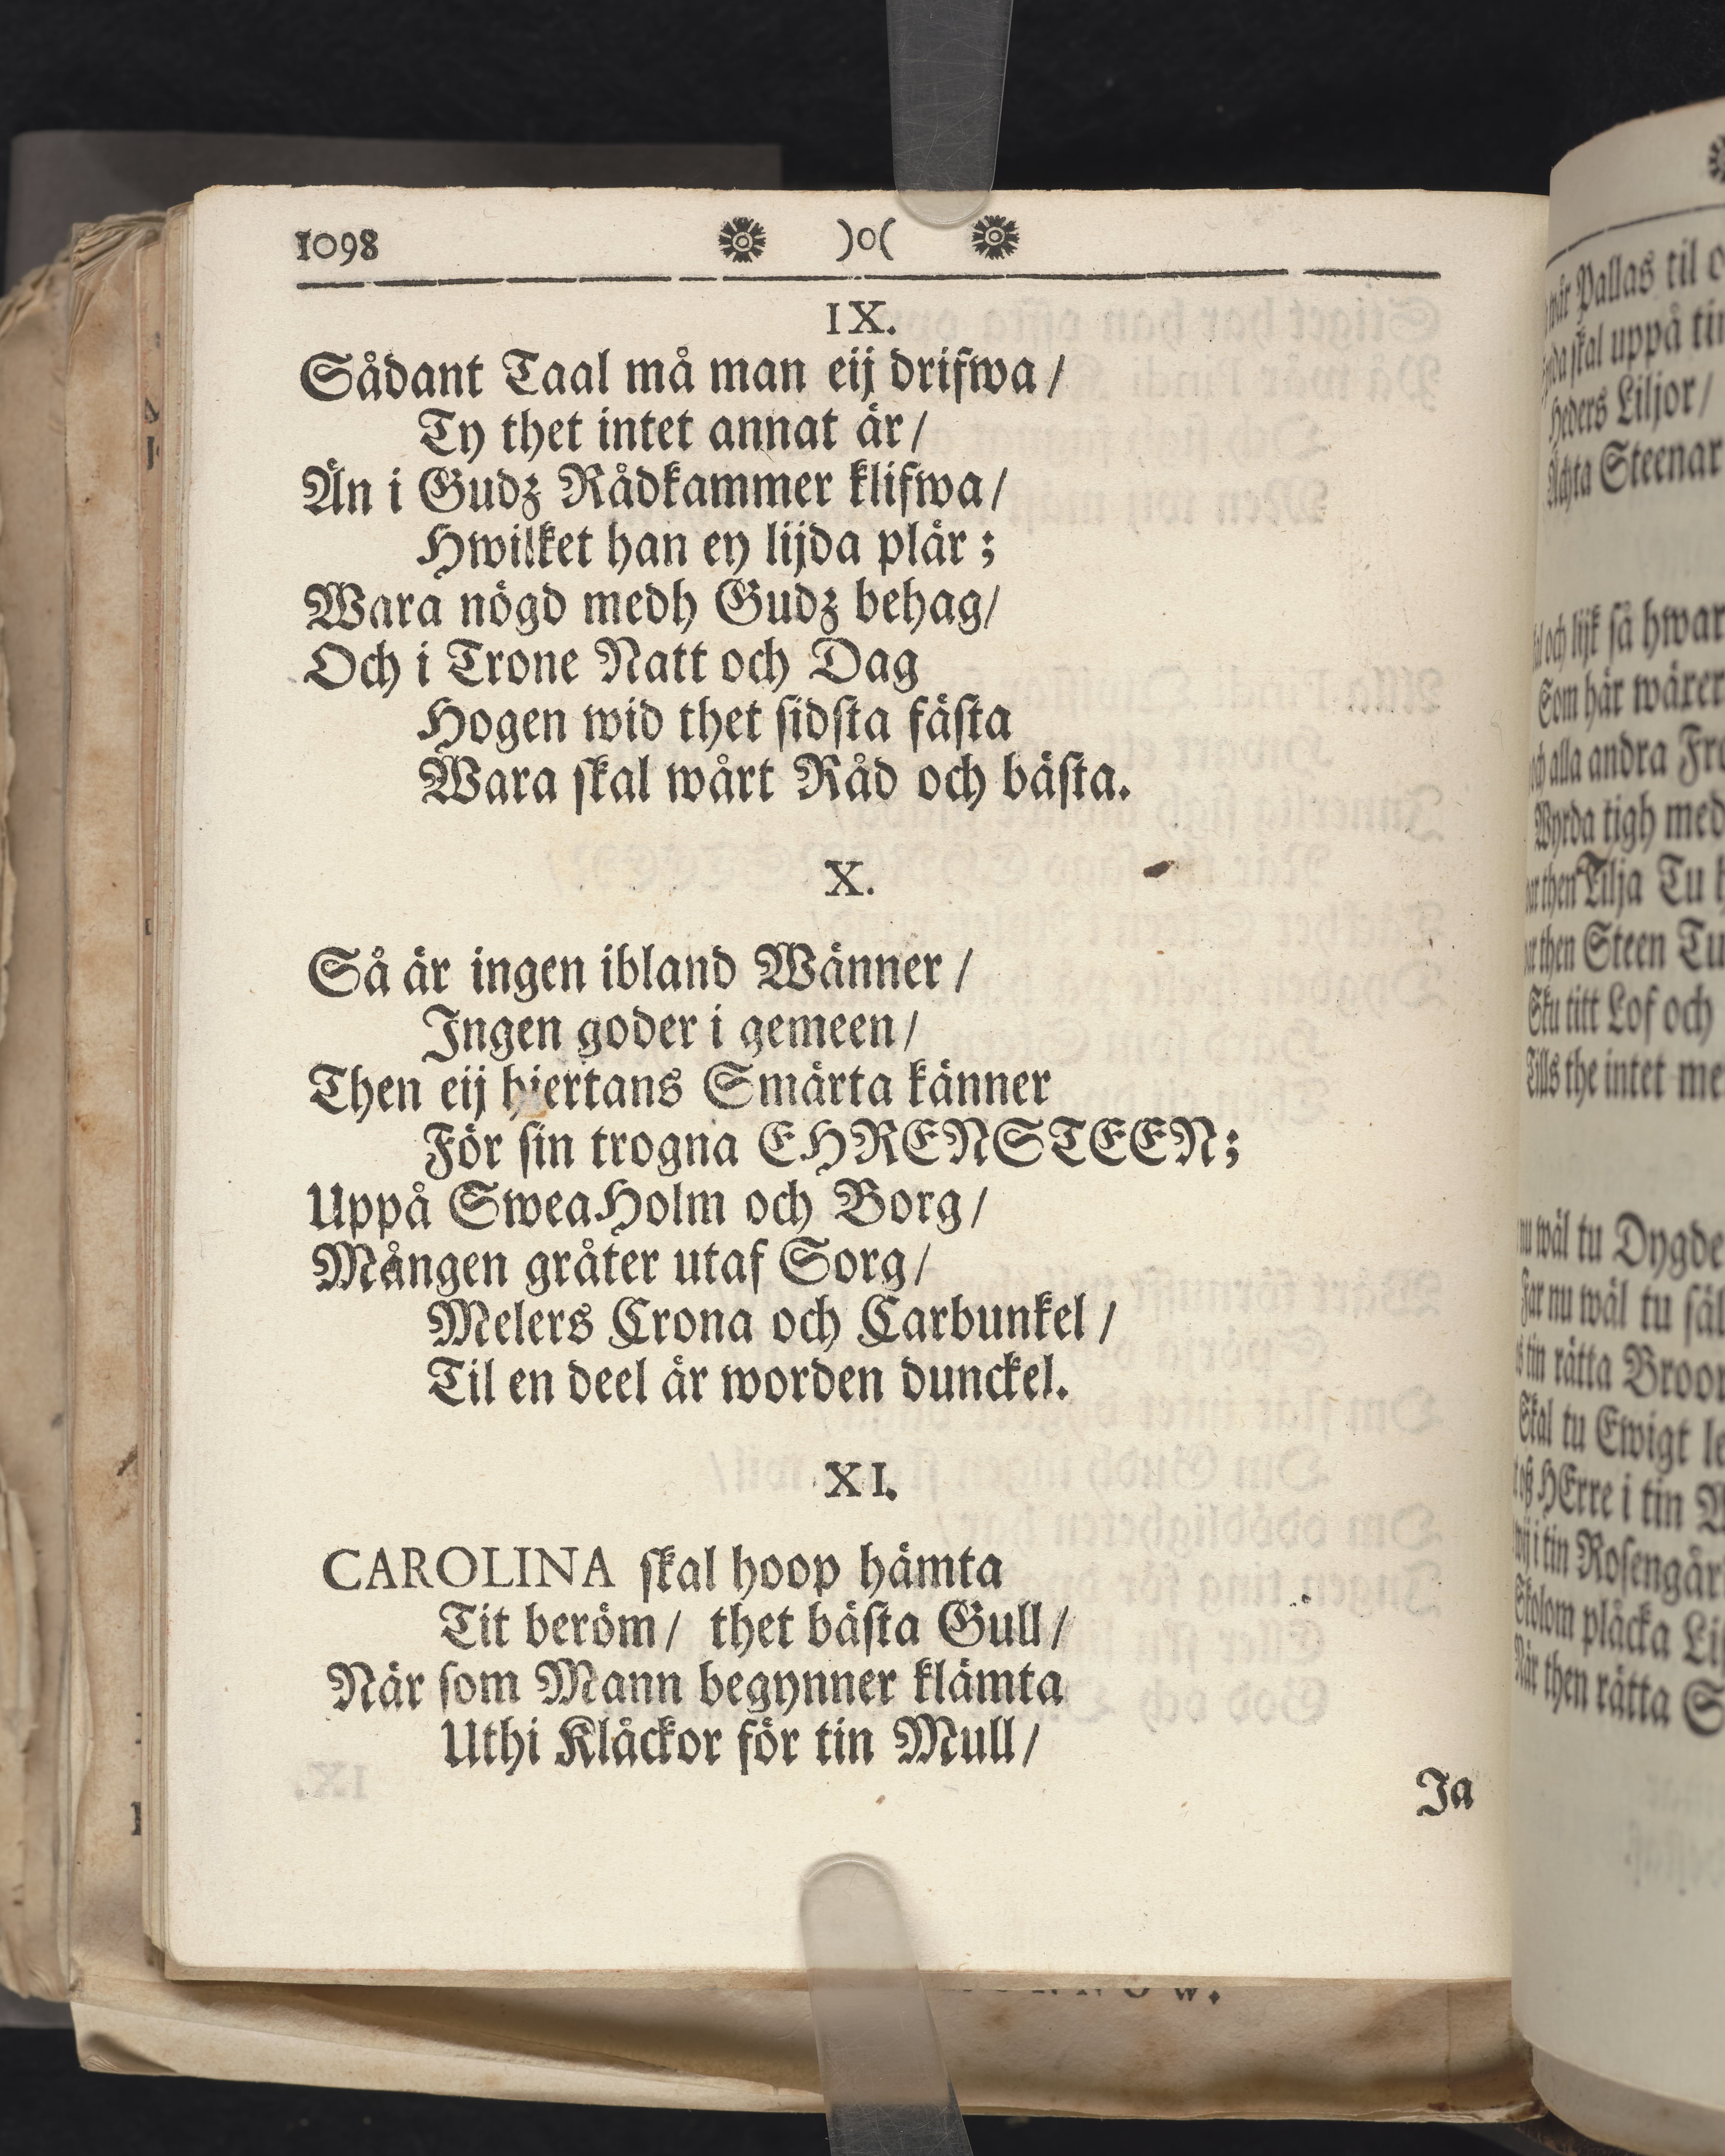 1098 )o(
IX.
Sådant Taal må man eij drifwa /
Ty thet intet annat är /
Än i Gudz Rådkammer klifwa /
Hwilket han ey lijda plär ;
Wara nögd medh Gudz behag /
Och i Trone Natt och Dag
Hogen wid thet sidsta fästa
Wara skal wårt Råd och bästa.
X.
Så är ingen ibland Wänner /
Ingen goder i gemeen /
Then eij hjertans Smärta känner
För sin trogna EHRENSTEEN;
Uppå SweaHolm och Borg /
Mången gråter utaf Sorg /
Melers Crona och Carbunkel /
Til en deel är worden dunckel.
XI.
CAROLINA skal hoop hämta
Tit beröm / thet bästa Gull /
När som Mann begynner klämta
Uthi Klåckor för tin Mull /
Ja
Pallas til
skal uppå
Heders Liljor /
Ächta Steenar
och lijk så hwar
Som här wäxer
och alla andra
Wyrda tigh med
then Lilja Tu
then Steen
Sku titt Lof och
Tills the intet
wäl tu
Far nu wäl tu
tin rätta
Skal tu Ewigt
HErre i tin
i tin
Skolom plåcka
När then rätta